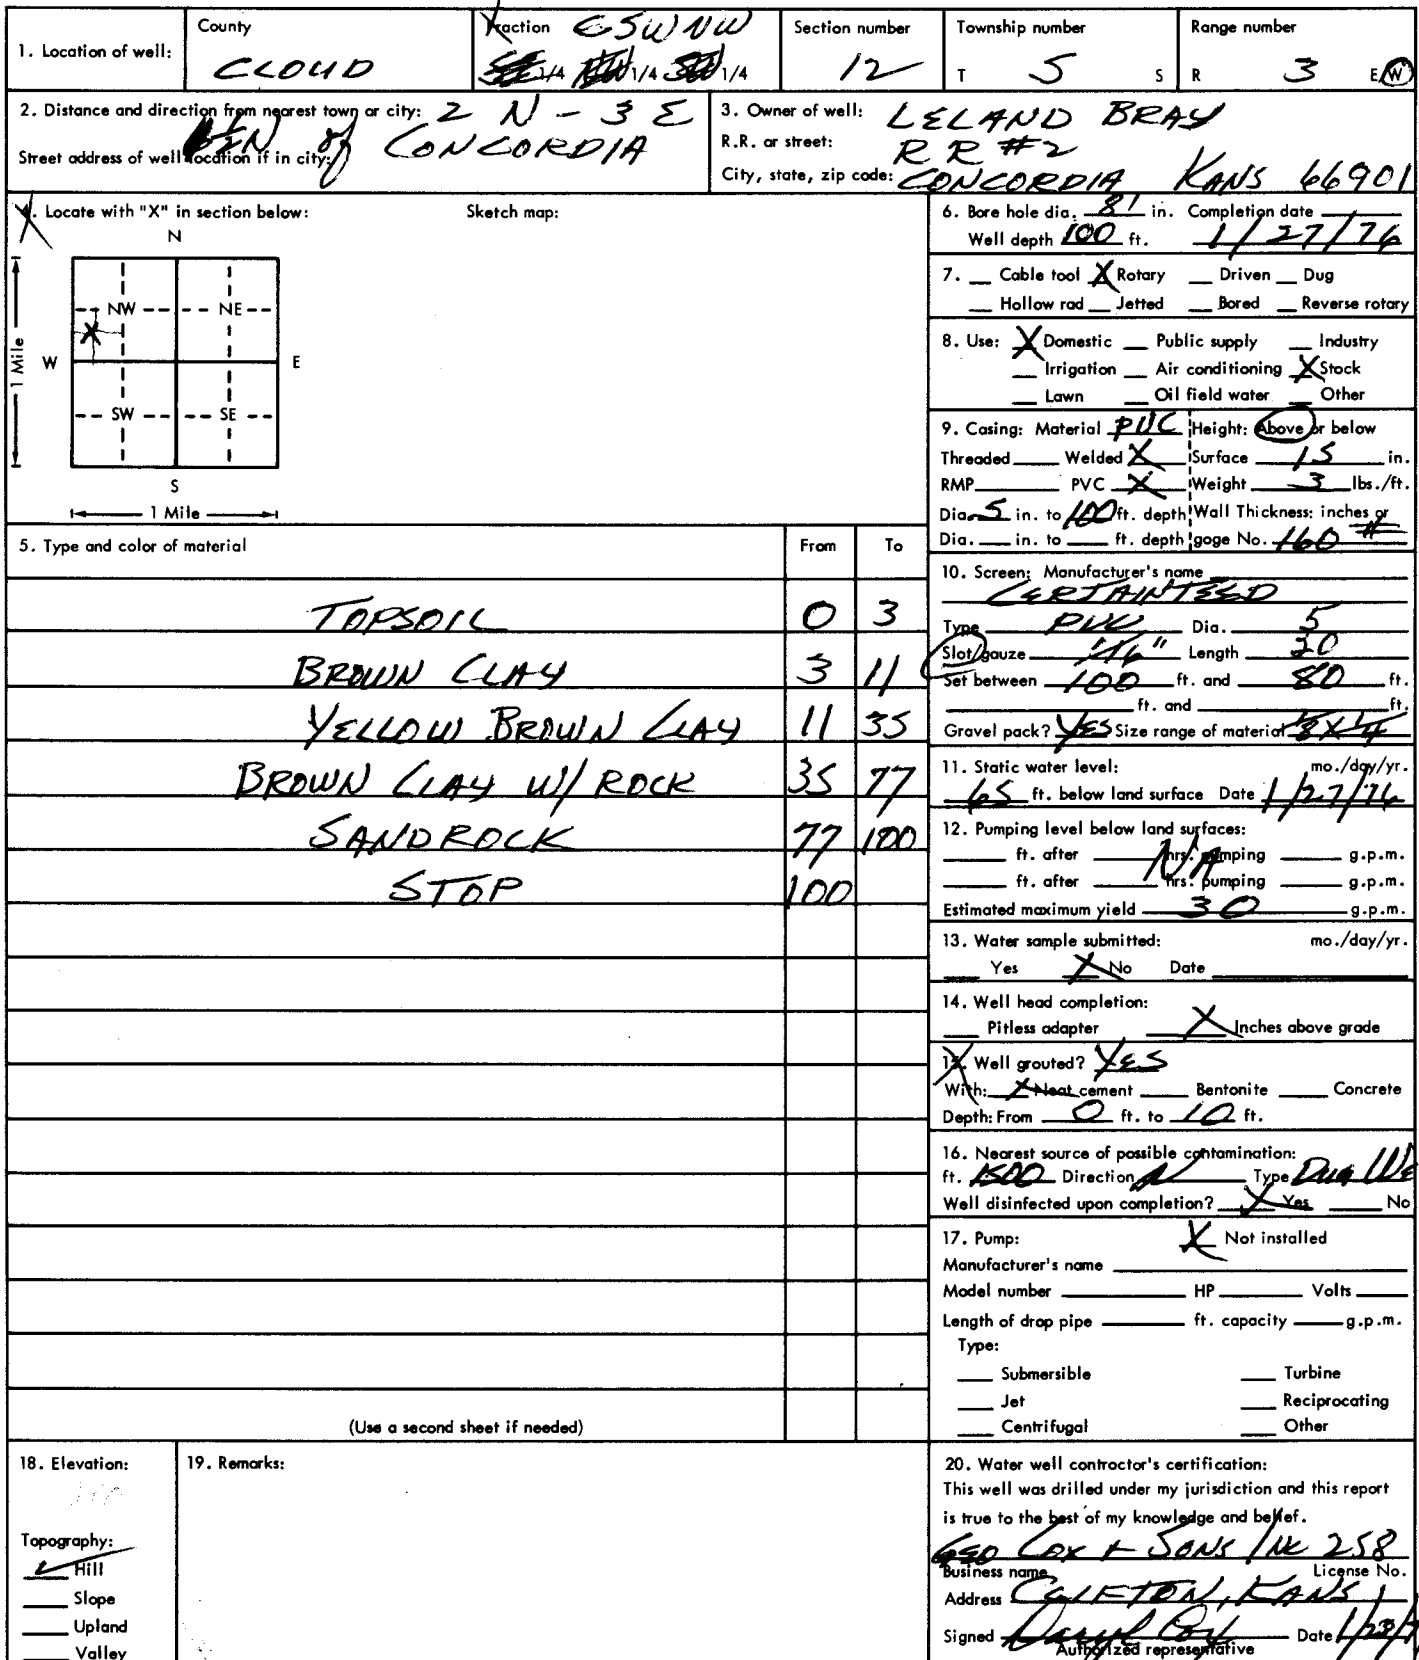 County Fraction CSWNW Section number Township number Range number
1. Location of well: CLOUD 1/4 1/4 1/4 12 T 5 S R 3 E/W
2. Distance and direction from nearest town or city: 2 N - 3 E
of CONCORDIA
Street address of well location if in city:
3. Owner of well: LELAND BRAY
R.R. or street: R R #2
City, state, zip code: CONCORDIA KANS 66901
4. Locate with "X" in section below: Sketch map:
N
NW NE
X
W E
1 Mile
SW SE
S
1 Mile
5. Type and color of material From To
TOPSOIL 0 3
BROWN CLAY 3 11
YELLOW BROWN CLAY 11 35
BROWN CLAY W/ ROCK 35 77
SANDROCK 77 100
STOP 100
(Use a second sheet if needed)
6. Bore hole dia. 8" in. Completion date
Well depth 100 ft. 1/27/76
7. Cable tool X Rotary Driven Dug
Hollow rod Jetted Bored Reverse rotary
8. Use: X Domestic Public supply Industry
Irrigation Air conditioning X Stock
Lawn Oil field water Other
9. Casing: Material PVC Height: Above or below
Threaded Welded X Surface 15 in.
RMP PVC X Weight 3 lbs./ft.
Dia. 5 in. to 100 ft. depth Wall Thickness: inches or
Dia. in. to ft. depth goge No. 160 #
10. Screen: Manufacturer's name
CERTAINTEED
Type PVC Dia. 5
Slot/gauze 1/16" Length 20
Set between 100 ft. and 80 ft.
ft. and ft.
Gravel pack? YES Size range of material 1/8 X 1/4
11. Static water level: mo./day/yr.
65 ft. below land surface Date 1/27/76
12. Pumping level below land surfaces:
ft. after hrs. pumping g.p.m.
NA
ft. after hrs. pumping g.p.m.
Estimated maximum yield 30 g.p.m.
13. Water sample submitted: mo./day/yr.
Yes X No Date
14. Well head completion:
Pitless adapter X Inches above grade
15. Well grouted? YES
With: X Neat cement Bentonite Concrete
Depth: From 0 ft. to 10 ft.
16. Nearest source of possible contamination:
ft. 1500 Direction N Type Dug We
Well disinfected upon completion? X Yes No
17. Pump: X Not installed
Manufacturer's name
Model number HP Volts
Length of drop pipe ft. capacity g.p.m.
Type:
Submersible Turbine
Jet Reciprocating
Centrifugal Other
18. Elevation:
Topography:
Hill
Slope
Upland
Valley
19. Remarks:
20. Water well contractor's certification:
This well was drilled under my jurisdiction and this report
is true to the best of my knowledge and belief.
GEO COX + SONS INC 258
Business name License No.
Address CLIFTON, KANS
Signed Daryl Cox Date 1/28/7
Authorized representative